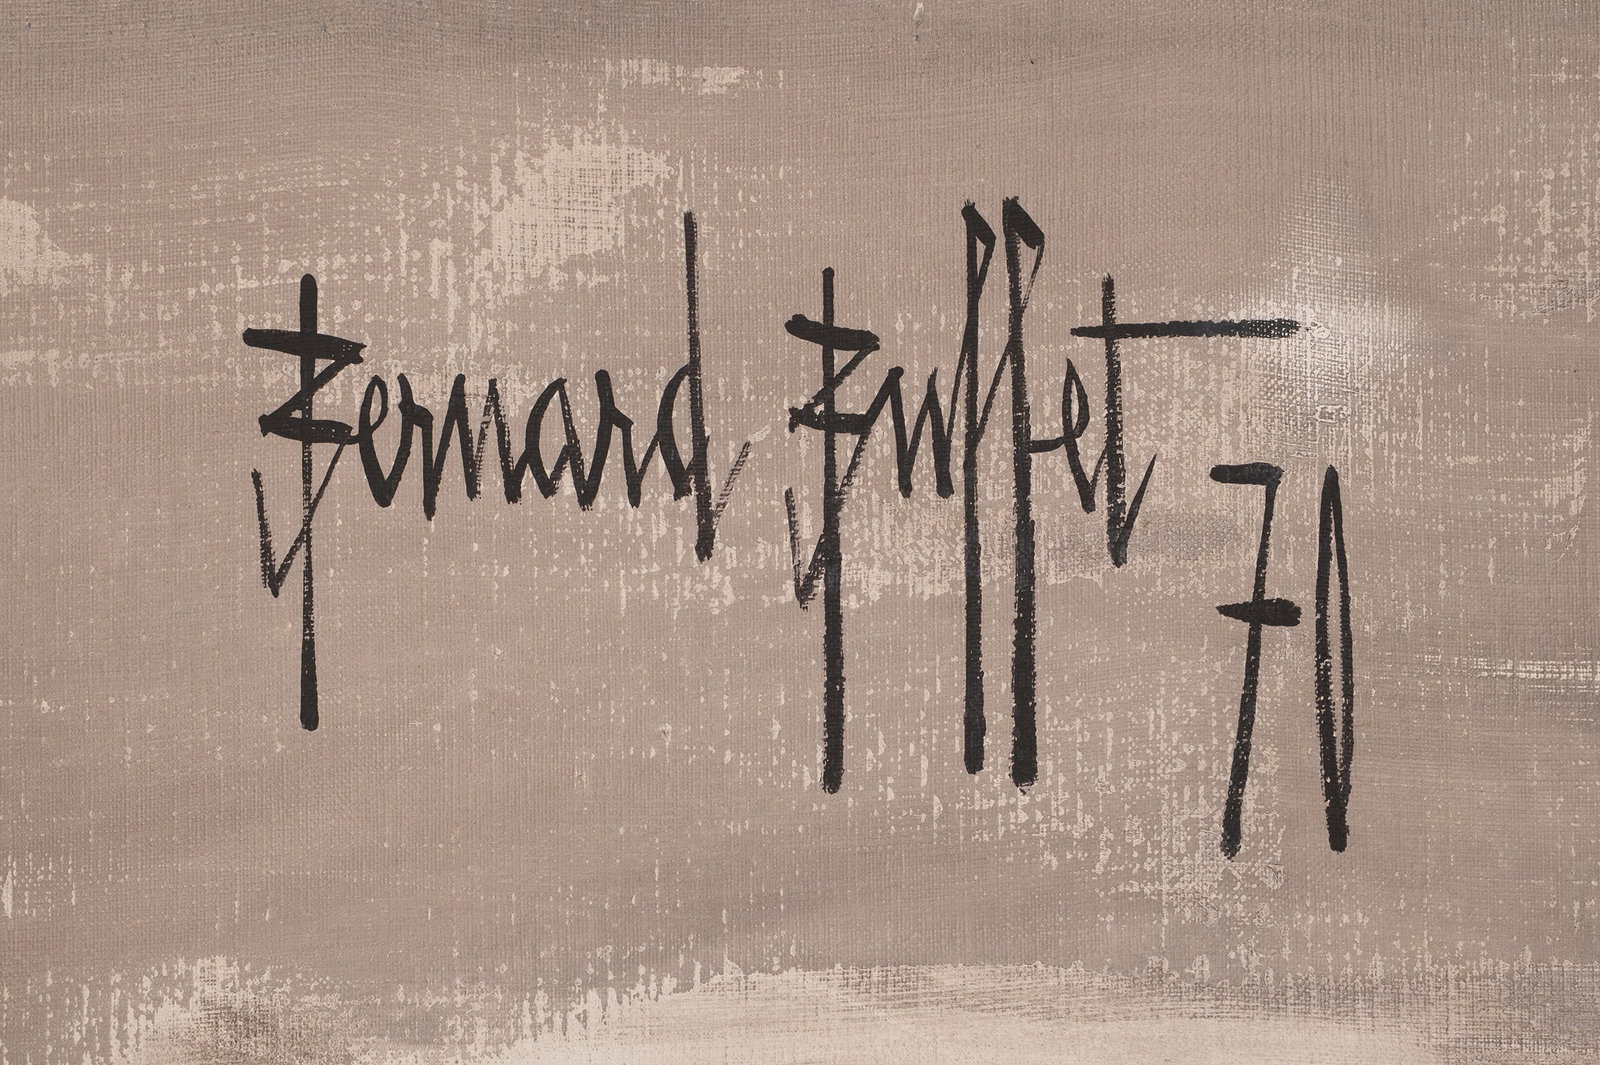 Bernard Buffet 70